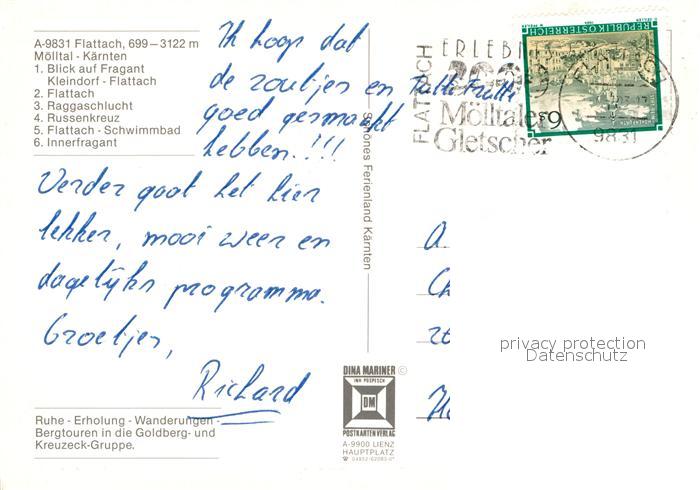 A-9831 Flattach, 699 – 3122 m
Mölltal - Kärnten
1. Blick auf Fragant
Kleindorf - Flattach
2. Flattach
3. Raggaschlucht
4. Russenkreuz
5. Flattach - Schwimmbad
6. Innerfragant
Ik hoop dat
de zoutjes en Tutti Frutti
goed gesmaakt
hebben.!!!
Verder gaat het hier
lekker, mooi weer en
dagelijks programma.
Groetjes,
Richard
Ruhe - Erholung - Wanderungen -
Bergtouren in die Goldberg- und
Kreuzeck-Gruppe.
Schönes Ferienland Kärnten
DINA MARINER ©
INH POSPESCH
DM
POSTKARTENVERLAG
A-9900 LIENZ
HAUPTPLATZ
FLATTACH
Mölltaler
Gletscher
REPUBLIK ÖSTERREICH
S6
9831
A.
Ch
privacy protection
Datenschutz